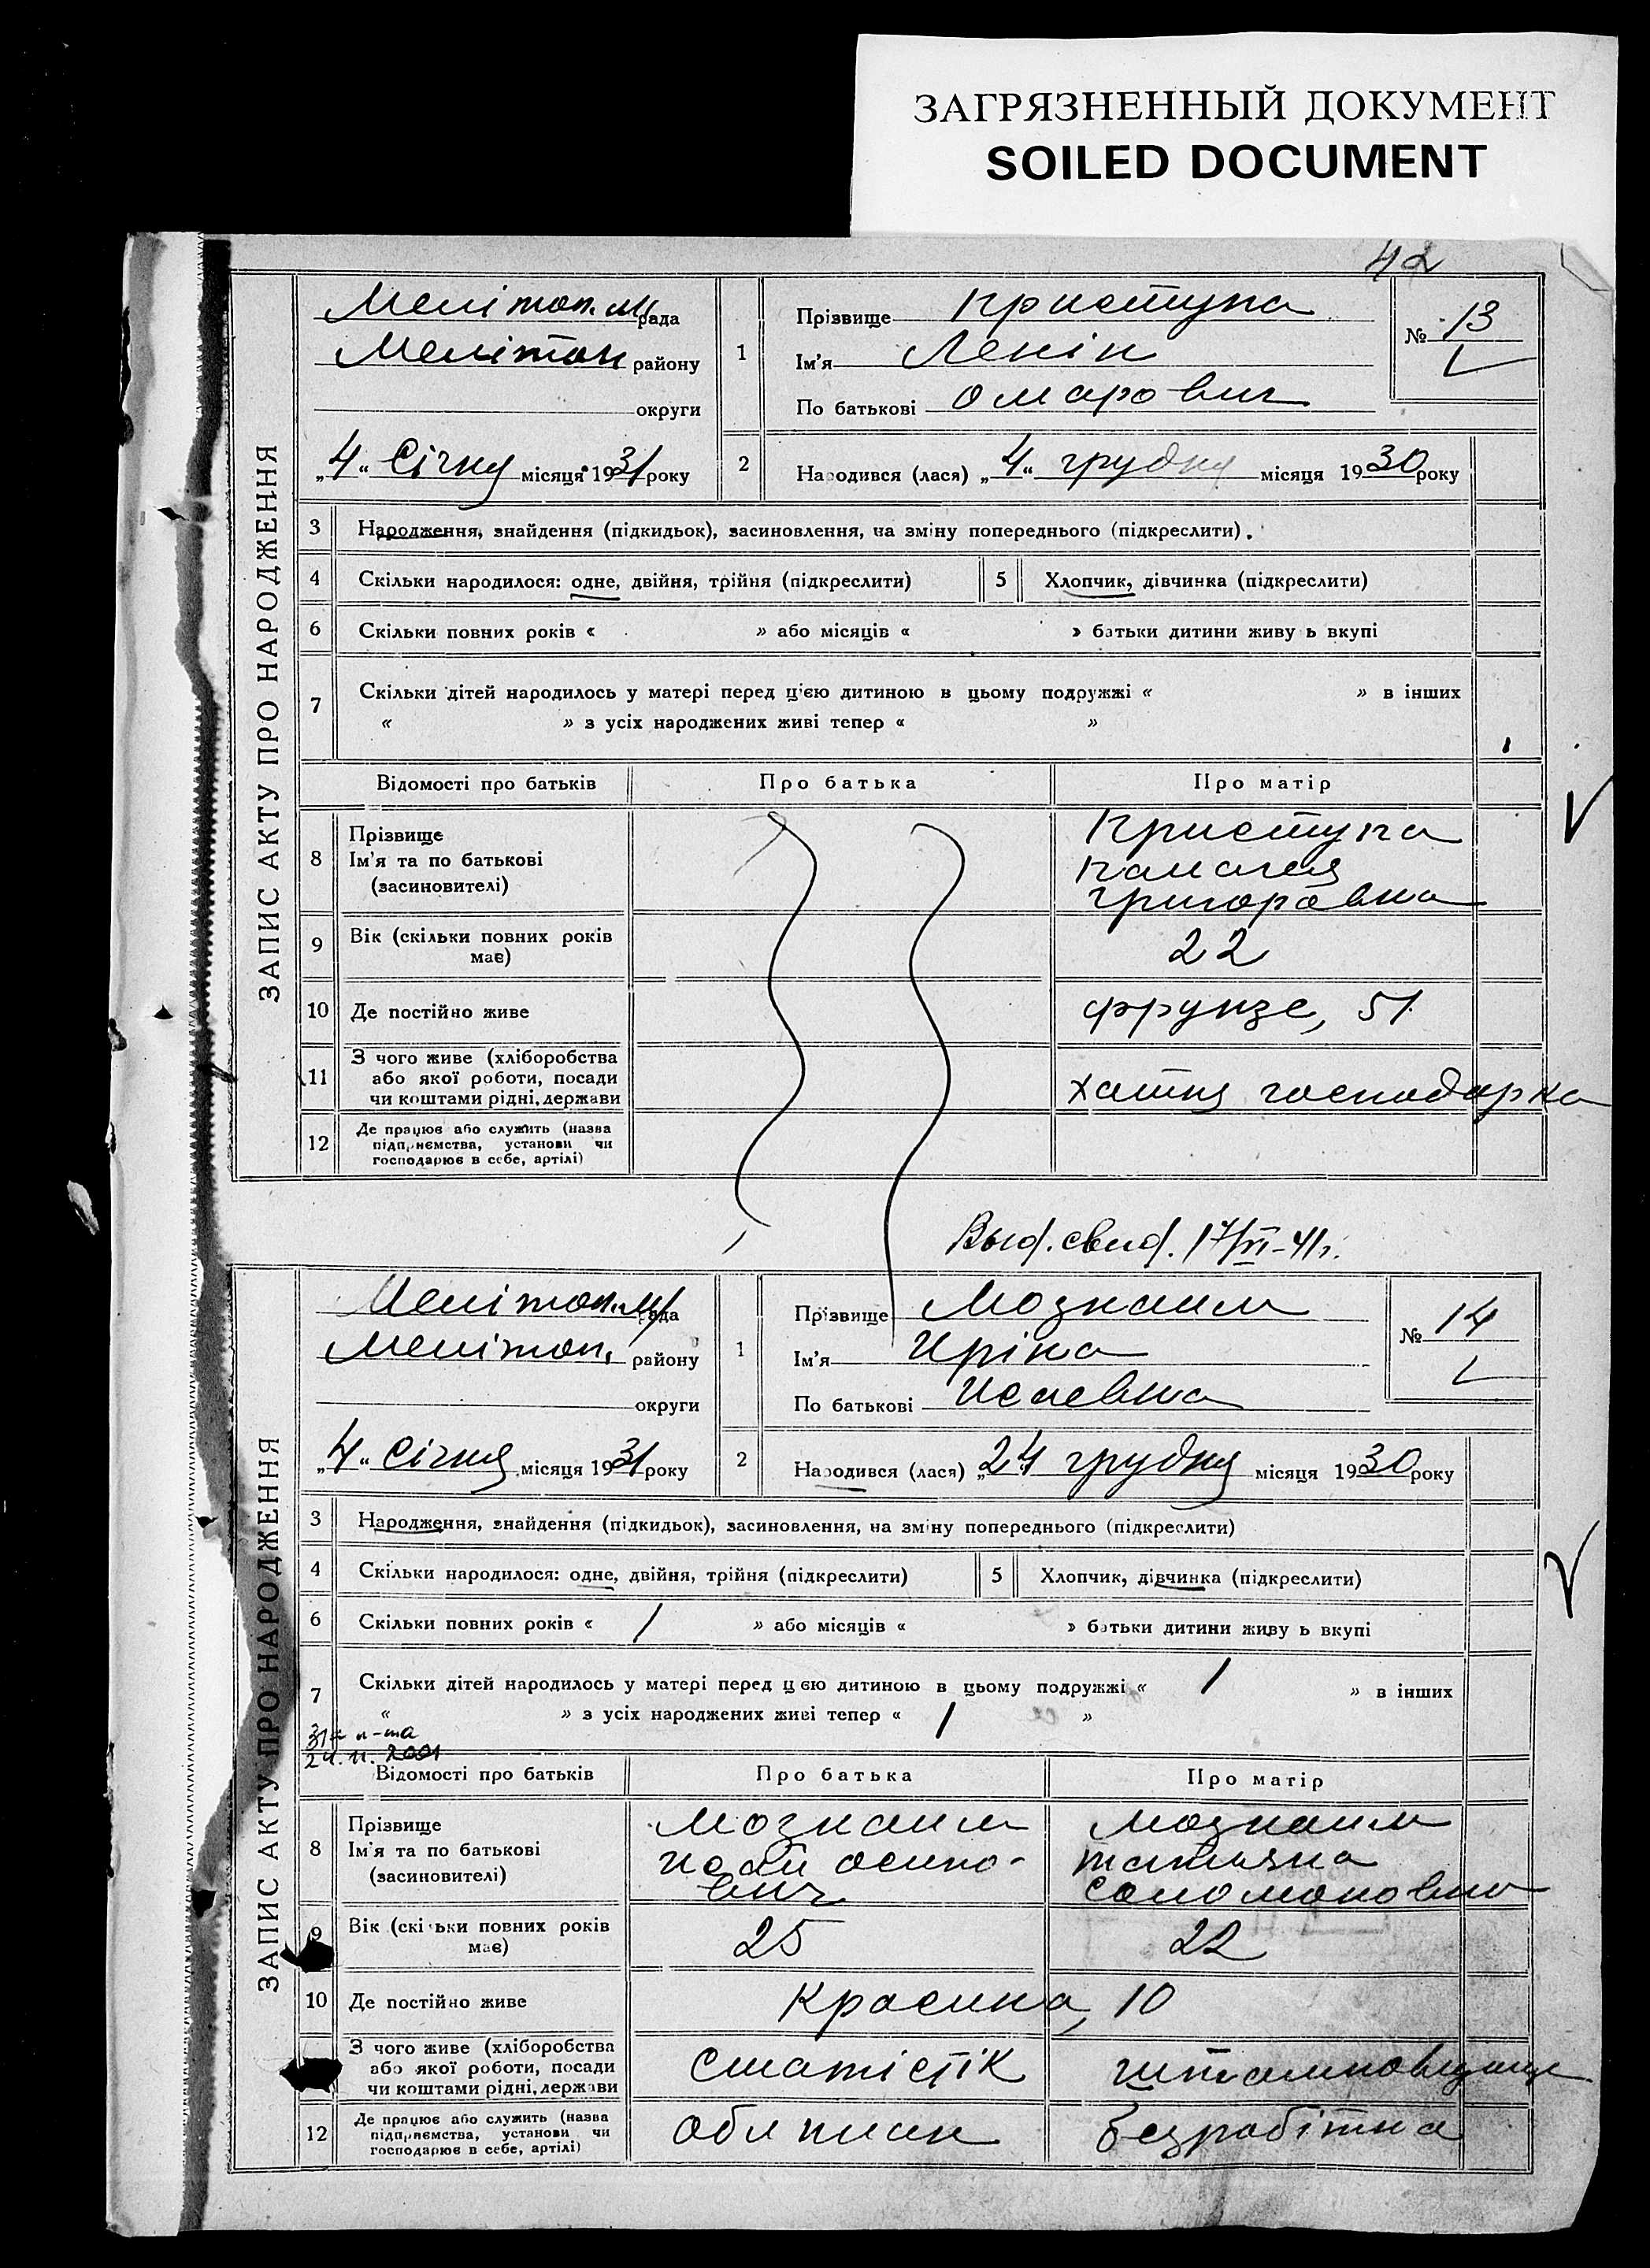 ЗАГРЯЗНЕННЫЙ ДОКУМЕНТ
SOILED DOCUMENT
42
ЗАПИС АКТУ ПРО НАРОДЖЕННЯ
Мелітоп. м рада
Мелітоп району
округи
„4“ Січня місяця 1931 року
1
Прізвище Криступа
Ім'я Ленін
По батькові Омарович
№ 13
2 Народився (лася) „4“ грудня місяця 1930 року
3 Народження, знайдення (підкидьок), засиновлення, на зміну попереднього (підкреслити).
4 Скільки народилося: одне, двійня, трійня (підкреслити) 5 Хлопчик, дівчинка (підкреслити)
6 Скільки повних років « » або місяців « » батьки дитини живу ь вкупі
7 Скільки дітей народилось у матері перед цією дитиною в цьому подружжі « » в інших
« » з усіх народжених живі тепер « »
Відомості про батьків Про батька Про матір
8 Прізвище Криступа
Ім'я та по батькові
(засиновителі) Григоровна
9 Вік (скільки повних років має) 22
10 Де постійно живе Фрунзе, 51
11 З чого живе (хліборобства
або якої роботи, посади
чи коштами рідні, держави Хатня господарка
12 Де працює або служить (назва
підприємства, установи чи
господарює в себе, артілі)
Выд. свид. 17/VI-41г.
ЗАПИС АКТУ ПРО НАРОДЖЕННЯ
Мелітоп. м рада
Мелітоп. району
округи
„4“ Січня місяця 1931 року
1
Прізвище Мознаим
Ім'я Иріна
По батькові Исаевна
№ 14
2 Народився (лася) „24 грудня місяця 1930 року
3 Народження, знайдення (підкидьок), засиновлення, на зміну попереднього (підкреслити)
4 Скільки народилося: одне, двійня, трійня (підкреслити) 5 Хлопчик, дівчинка (підкреслити)
6 Скільки повних років « 1 » або місяців « » батьки дитини живу ь вкупі
7 Скільки дітей народилось у матері перед цією дитиною в цьому подружжі « 1 » в інших
« » з усіх народжених живі тепер « 1 »
2001
Відомості про батьків Про батька Про матір
8 Прізвище Мознаим Мознаим
Ім'я та по батькові Исай Осипо- Татьяна
(засиновителі) вич Соломоновна
9 Вік (скільки повних років має) 25 22
10 Де постійно живе Красина, 10
З чого живе (хліборобства
або якої роботи, посади
чи коштами рідні, держави Статістік штамповщица
12 Де працює або служить (назва
підприємства, установи чи
господарює в себе, артілі) безробітна